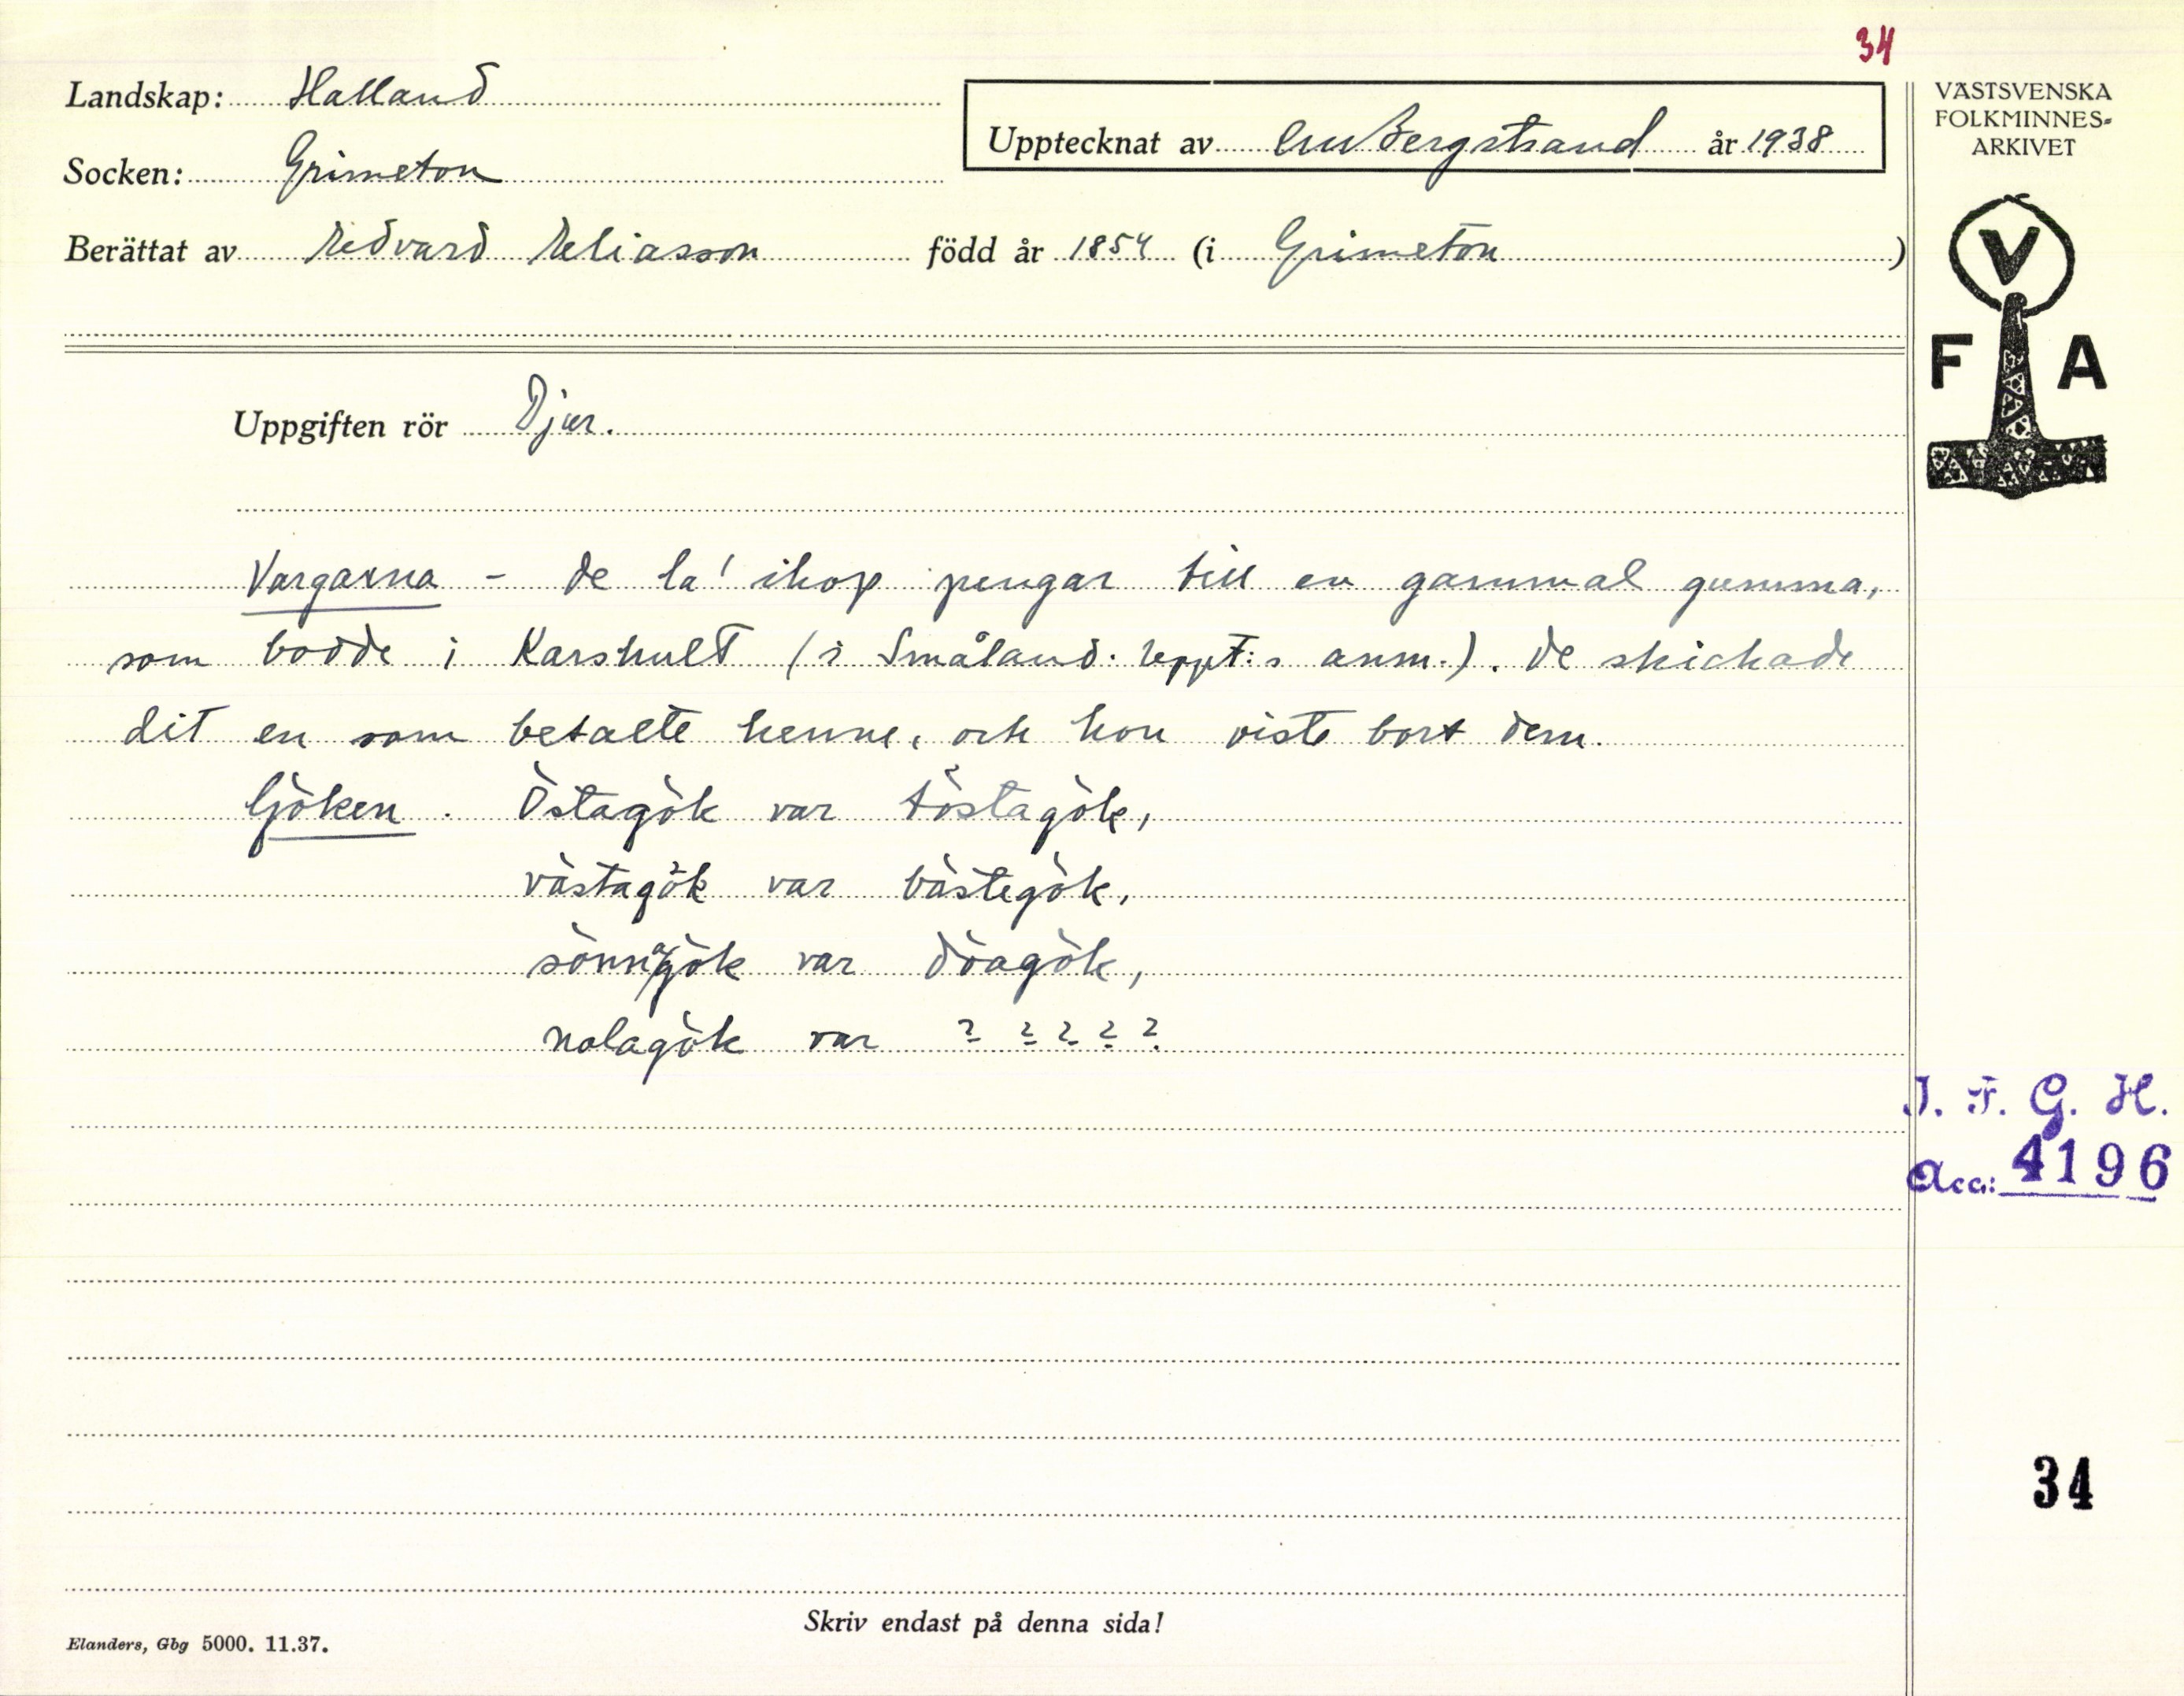 34
Landskap: Halland
Upptecknat av CM Bergstrand år 1938
Socken: Grimeton
Berättat av Edvard Eliasson född år 1854 (i Grimeton)
VÄSTSVENSKA
FOLKMINNES-
ARKIVET
V
F A
Uppgiften rör Djur.
Vargarna - de la' ihop pengar till en gammal gumma,
som bodde i Karshult (i Småland. Uppt:s anm.). De skickade
dit en som betalte henne, och hon viste bort dem.
Göken. Östagök var töstagök,
västagök var bästegök,
sönnagök var döagök,
nolagök var ? ? ? ? ?
I. F. G. H.
Acc: 4196
34
Skriv endast på denna sida!
Elanders, Gbg 5000. 11.37.